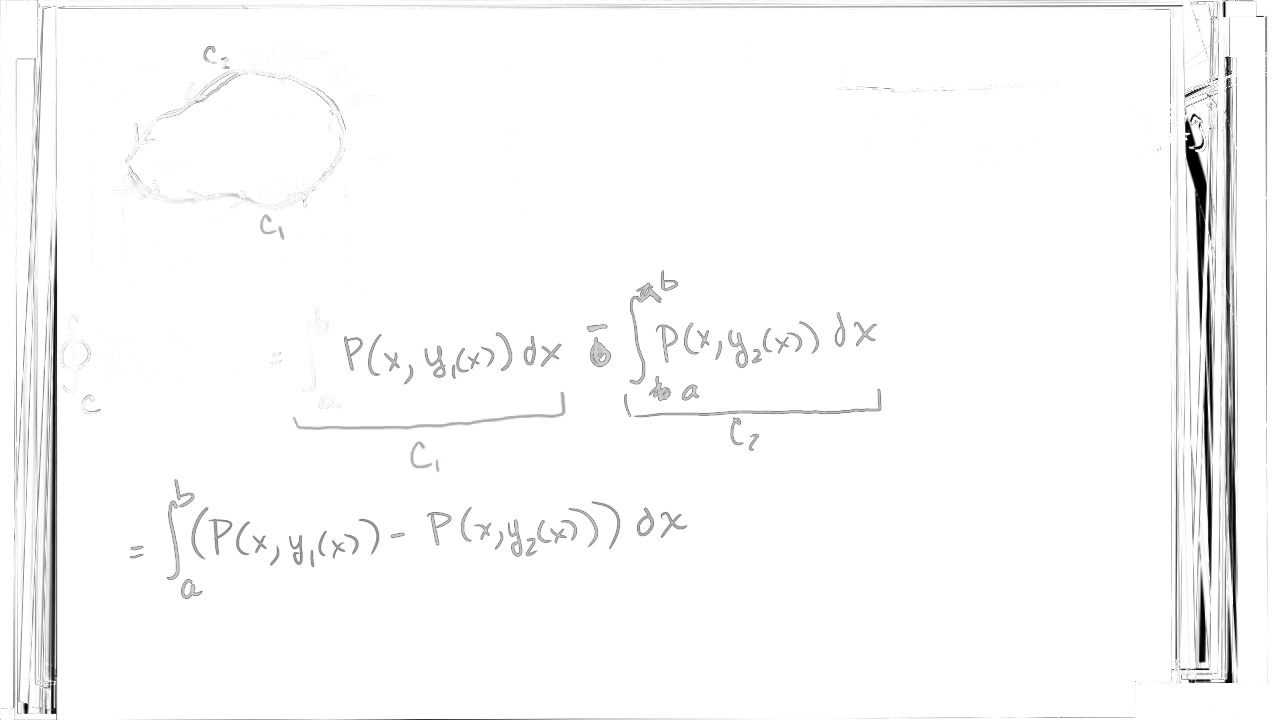 C₂
C₁
∮_C = ∫ P(x, y₁(x)) dx - ∫_a^b P(x, y₂(x)) dx
C₁ C₂
= ∫_a^b (P(x, y₁(x)) - P(x, y₂(x))) dx